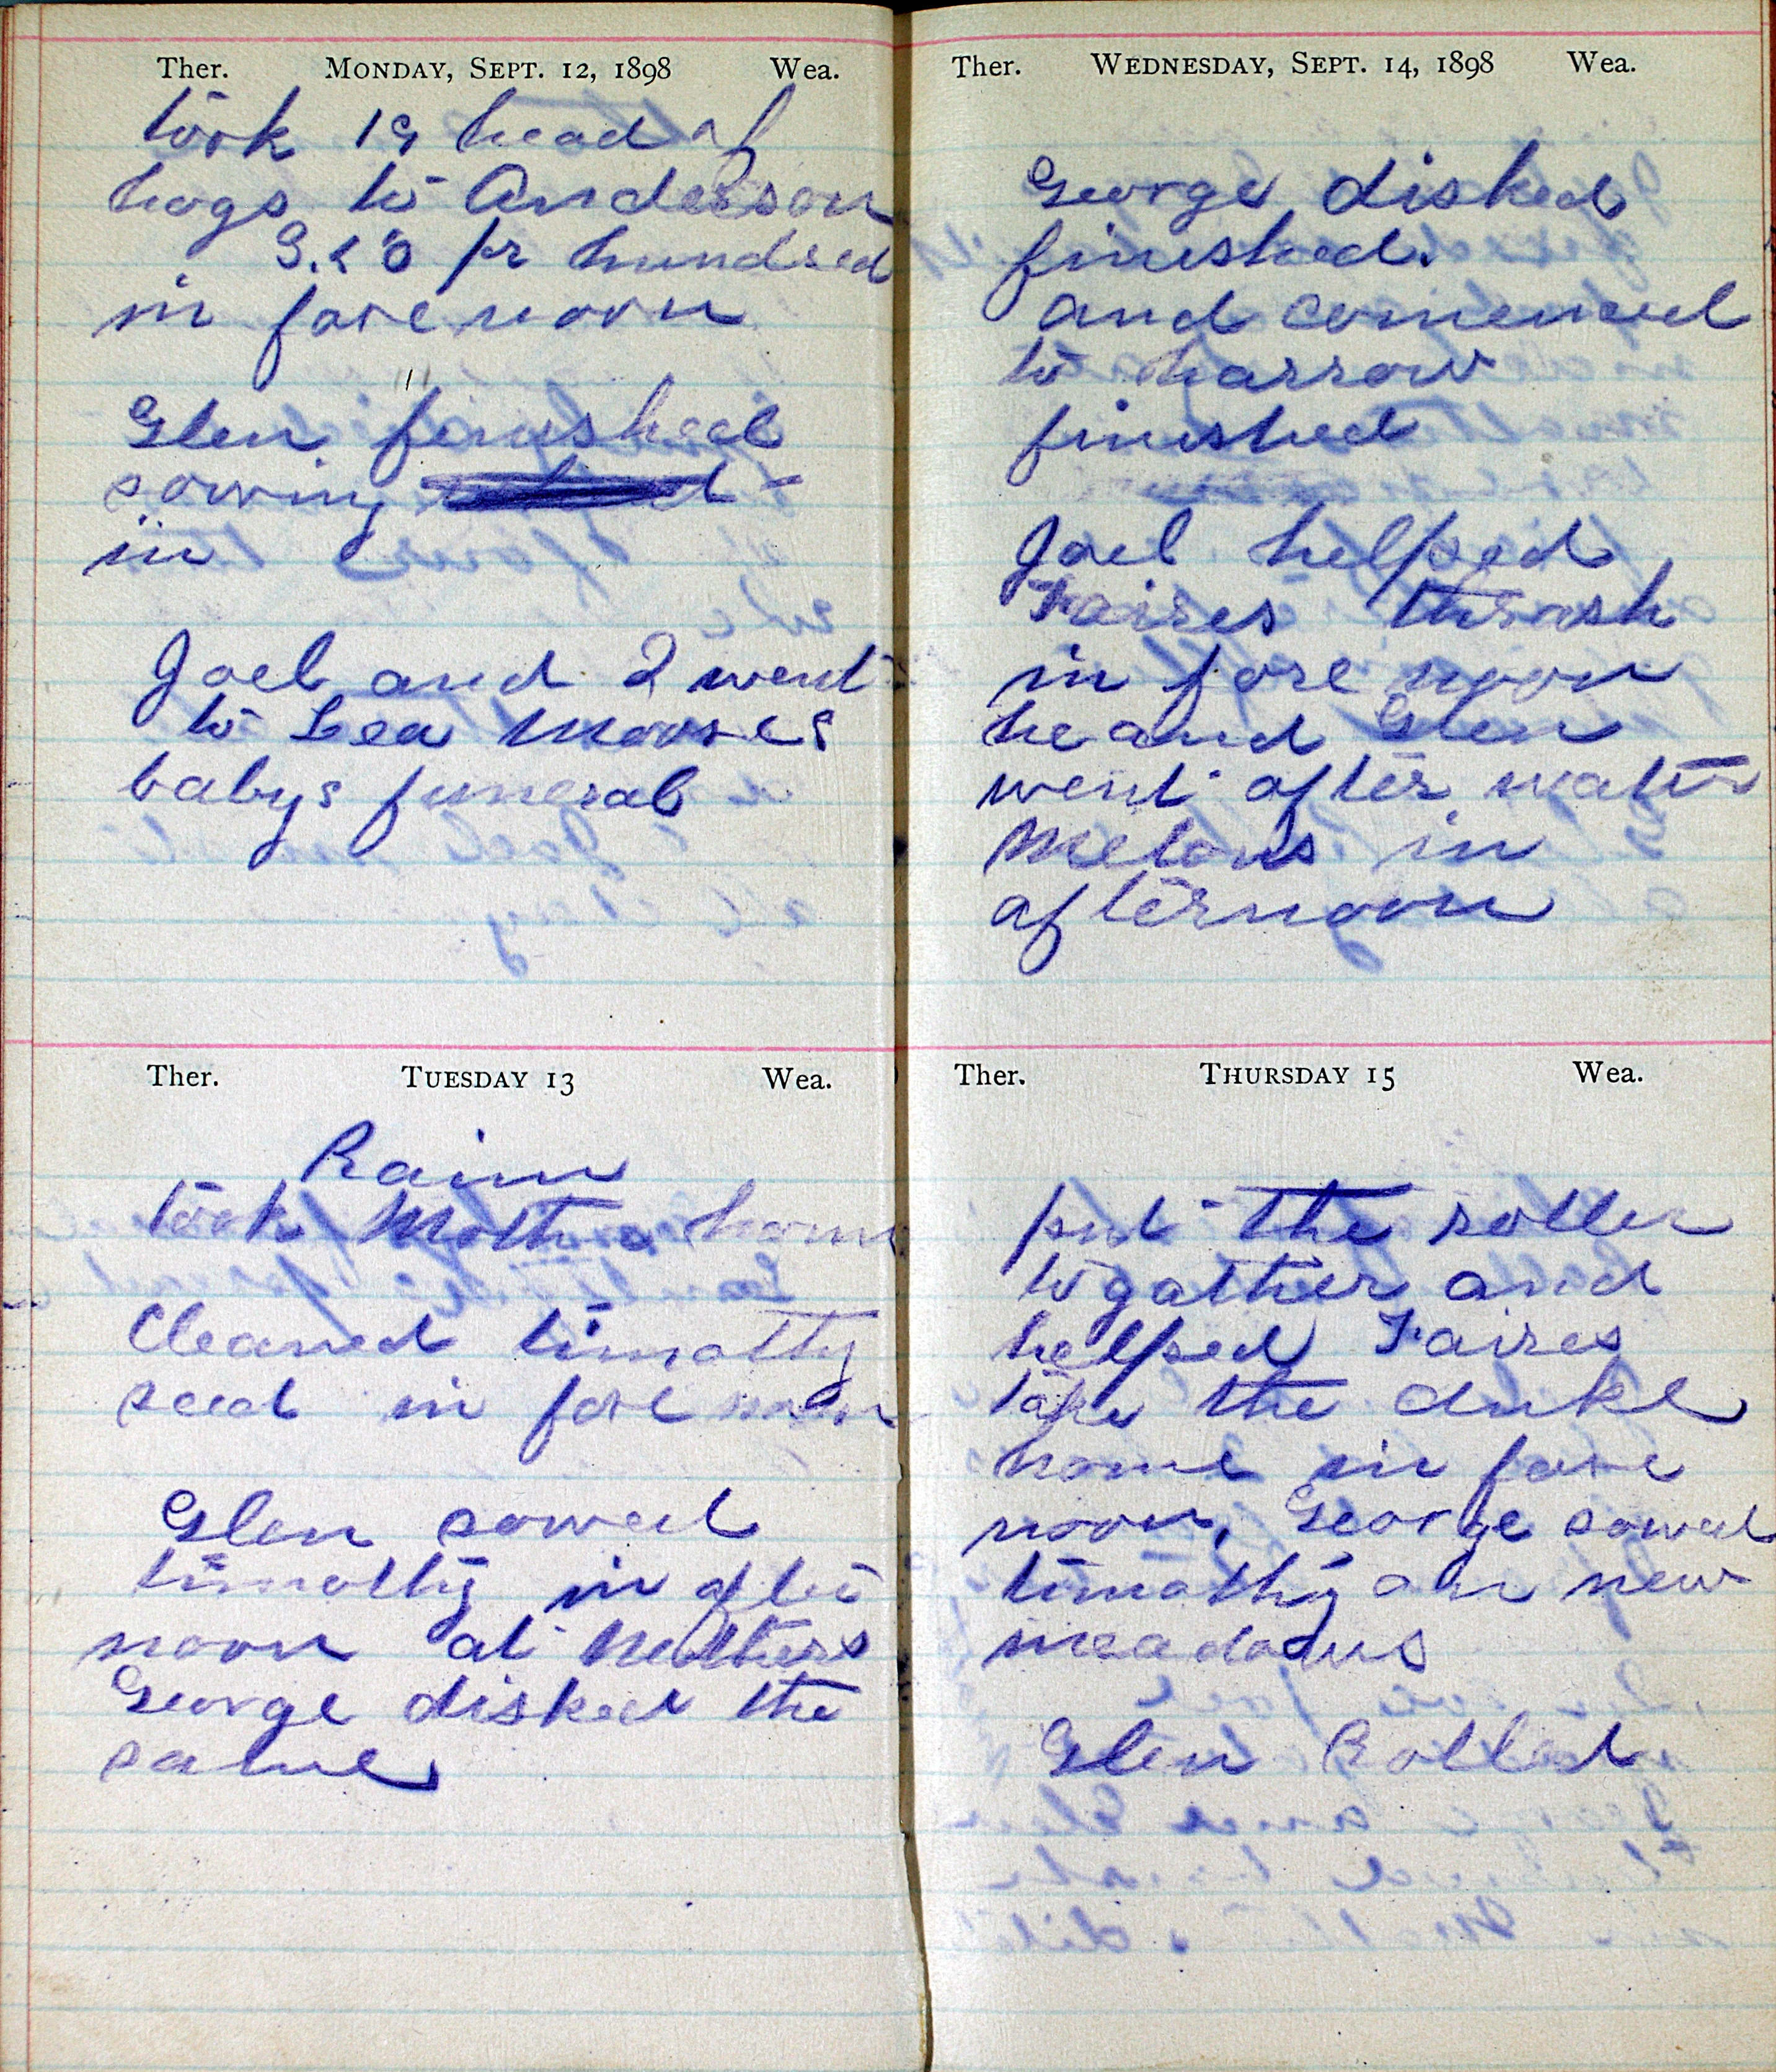 Ther. Monday, Sept. 12, 1898 Wea.
took 19 head of
hogs to Anderson
3.50 pr hundred
in fore noon
Glen finished
sowing
in
Joel and I went
to Lea Mooses
babys funeral
Ther. Tuesday 13 Wea.
Rain
took Mother home
Cleaned timothy
seed in fore noon
Glen sowed
timothy in after
noon at Mothers
George disked the
same
Ther. Wednesday, Sept. 14, 1898 Wea.
George disked
finished.
and comenced
to harrow
finished
Joel helped
Faires thrash
in fore noon
he and Glen
went after water
Melons in
afternoon
Ther. Thursday 15 Wea.
put the roller
togather and
helped Faires
take the duke
home in fore
noon, George sowed
timothy on new
meadows
Glen Rolled